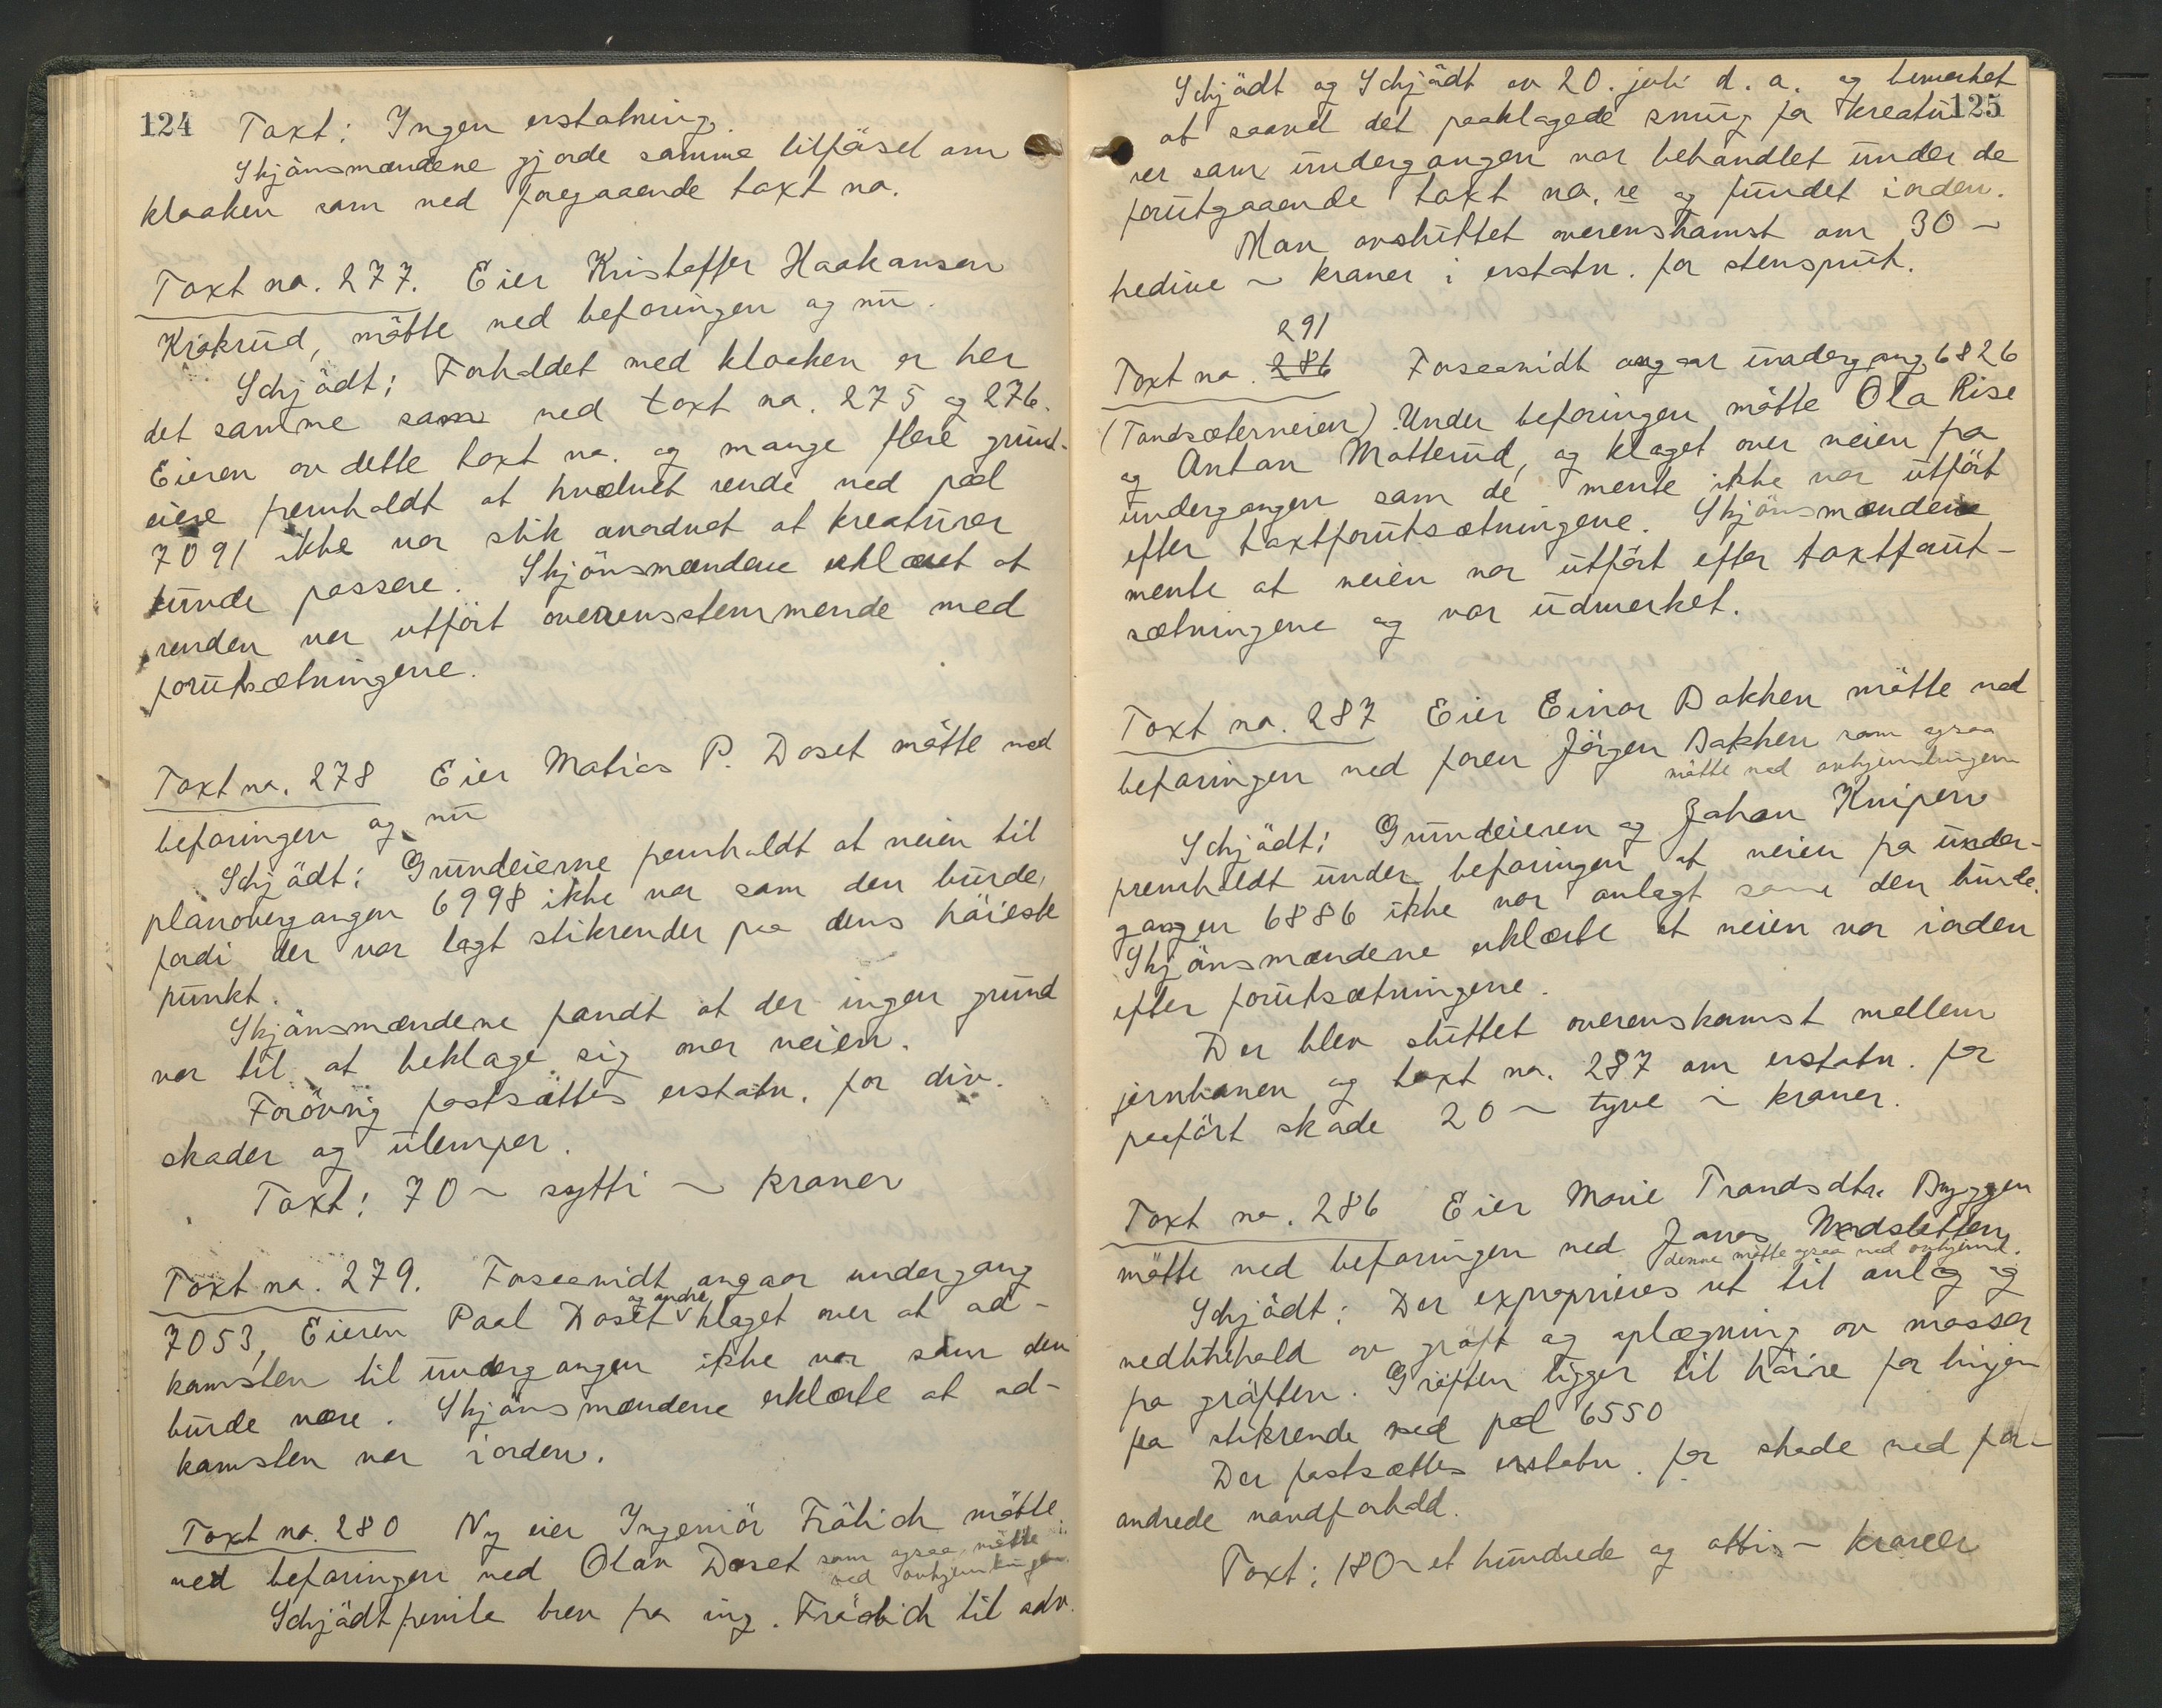 124
Taxt: Ingen erstatning.
Skjönsmændene gjorde samme tilföiel om
kloaken som ved foregaaende taxt no.
Taxt no. 277. Eier Kristoffer Haakansen
Kiokrud, mötte ved befaringen og nu.
Schjödt: Forholdet med kloaken er her
det samme som ved taxt no. 275 og 276.
Eieren av dette taxt no. og mange flere grund-
eiere fremholdt at hvælvet rende ved pæl
7091 ikke var slik anordnet at kreaturer
kunde passere. Skjönsmændene erklæret at
renden var utfört overensstemmende med
forutsætningene.
Taxt no. 278 Eier Matias P. Doset mötte ved
befaringen og nu
Schjödt: Grundeierne fremholdt at veien til
planovergangen 6998 ikke var som den burde,
fordi der var lagt stikrender paa dens höieste
punkt.
Skjönsmændene fandt at der ingen grund
var til at beklage sig over veien.
Forövrig fastsættes erstatn. for div.
skader og ulemper.
Taxt: 70 ~ sytti ~ kroner
Taxt no. 279. Forsaavidt angaar undergang
7053, Eieren Paal Doset og andre klaget over at ad-
komsten til undergangen ikke var som den
burde være. Skjönsmændene erklærte at ad-
komsten var iorden.
Taxt no. 280 Ny eier Ingeniör Frölich mötte
ved befaringen ved Olav Doset som ogsaa mötte
ved avhjemlingen.
Schjödt femla brev fra ing. Frölich til adv.
125
Schjödt og Schjödt av 20. juli d. a. og bemerket
at saavel det paaklagede smug for kreatu-
rer som undergangen var behandlet under de
forutgaaende taxt no.re og fundet iorden.
Man avsluttet overenskomst om 30 ~
tredive ~ kroner i erstatn. for stensprut.
291
Taxt no. 286 Forsaavidt angaar undergang 6826
(Tandsæterveien). Under befaringen mötte Ola Rise
og Anton Motterud, og klaget over veien fra
undergangen som de mente ikke var utfört
efter taxtforutsætningene. Skjönsmændene
mente at veien var utfört efter taxtforut-
sætningene og var udmerket.
Taxt no. 287 Eier Einar Bakken mötte ved
befaringen ved faren Jörgen Bakken som ogsaa
mötte ved avhjemlingen
Schjödt: Grundeieren og Johan Knipen
fremholdt under befaringen at veien fra under-
gangen 6886 ikke var anlagt som den burde.
Skjönsmændene erklærte at veien var iorden
efter forutsætningene.
Der blev sluttet overenskomst mellem
jernbanen og taxt no. 287 om erstatn. for
paafört skade 20 ~ tyve ~ kroner.
Taxt no. 286 Eier Marie Trondsdtr. Byggen
mötte ved befaringen ved Jonas Medsletten
denne mötte ogsaa ved avhjeml.
Schjödt: Der exproprieres ret til anlæg og
vedlikehold av gröft og oplægning av masser
fra gröften. Gröften ligger til höire for linjen
fra stikrende ved pæl 6550
Der fastsættes erstatn. for skade ved for-
andrede vandforhold.
Taxt: 180 ~ et hundrede og otti ~ kroner